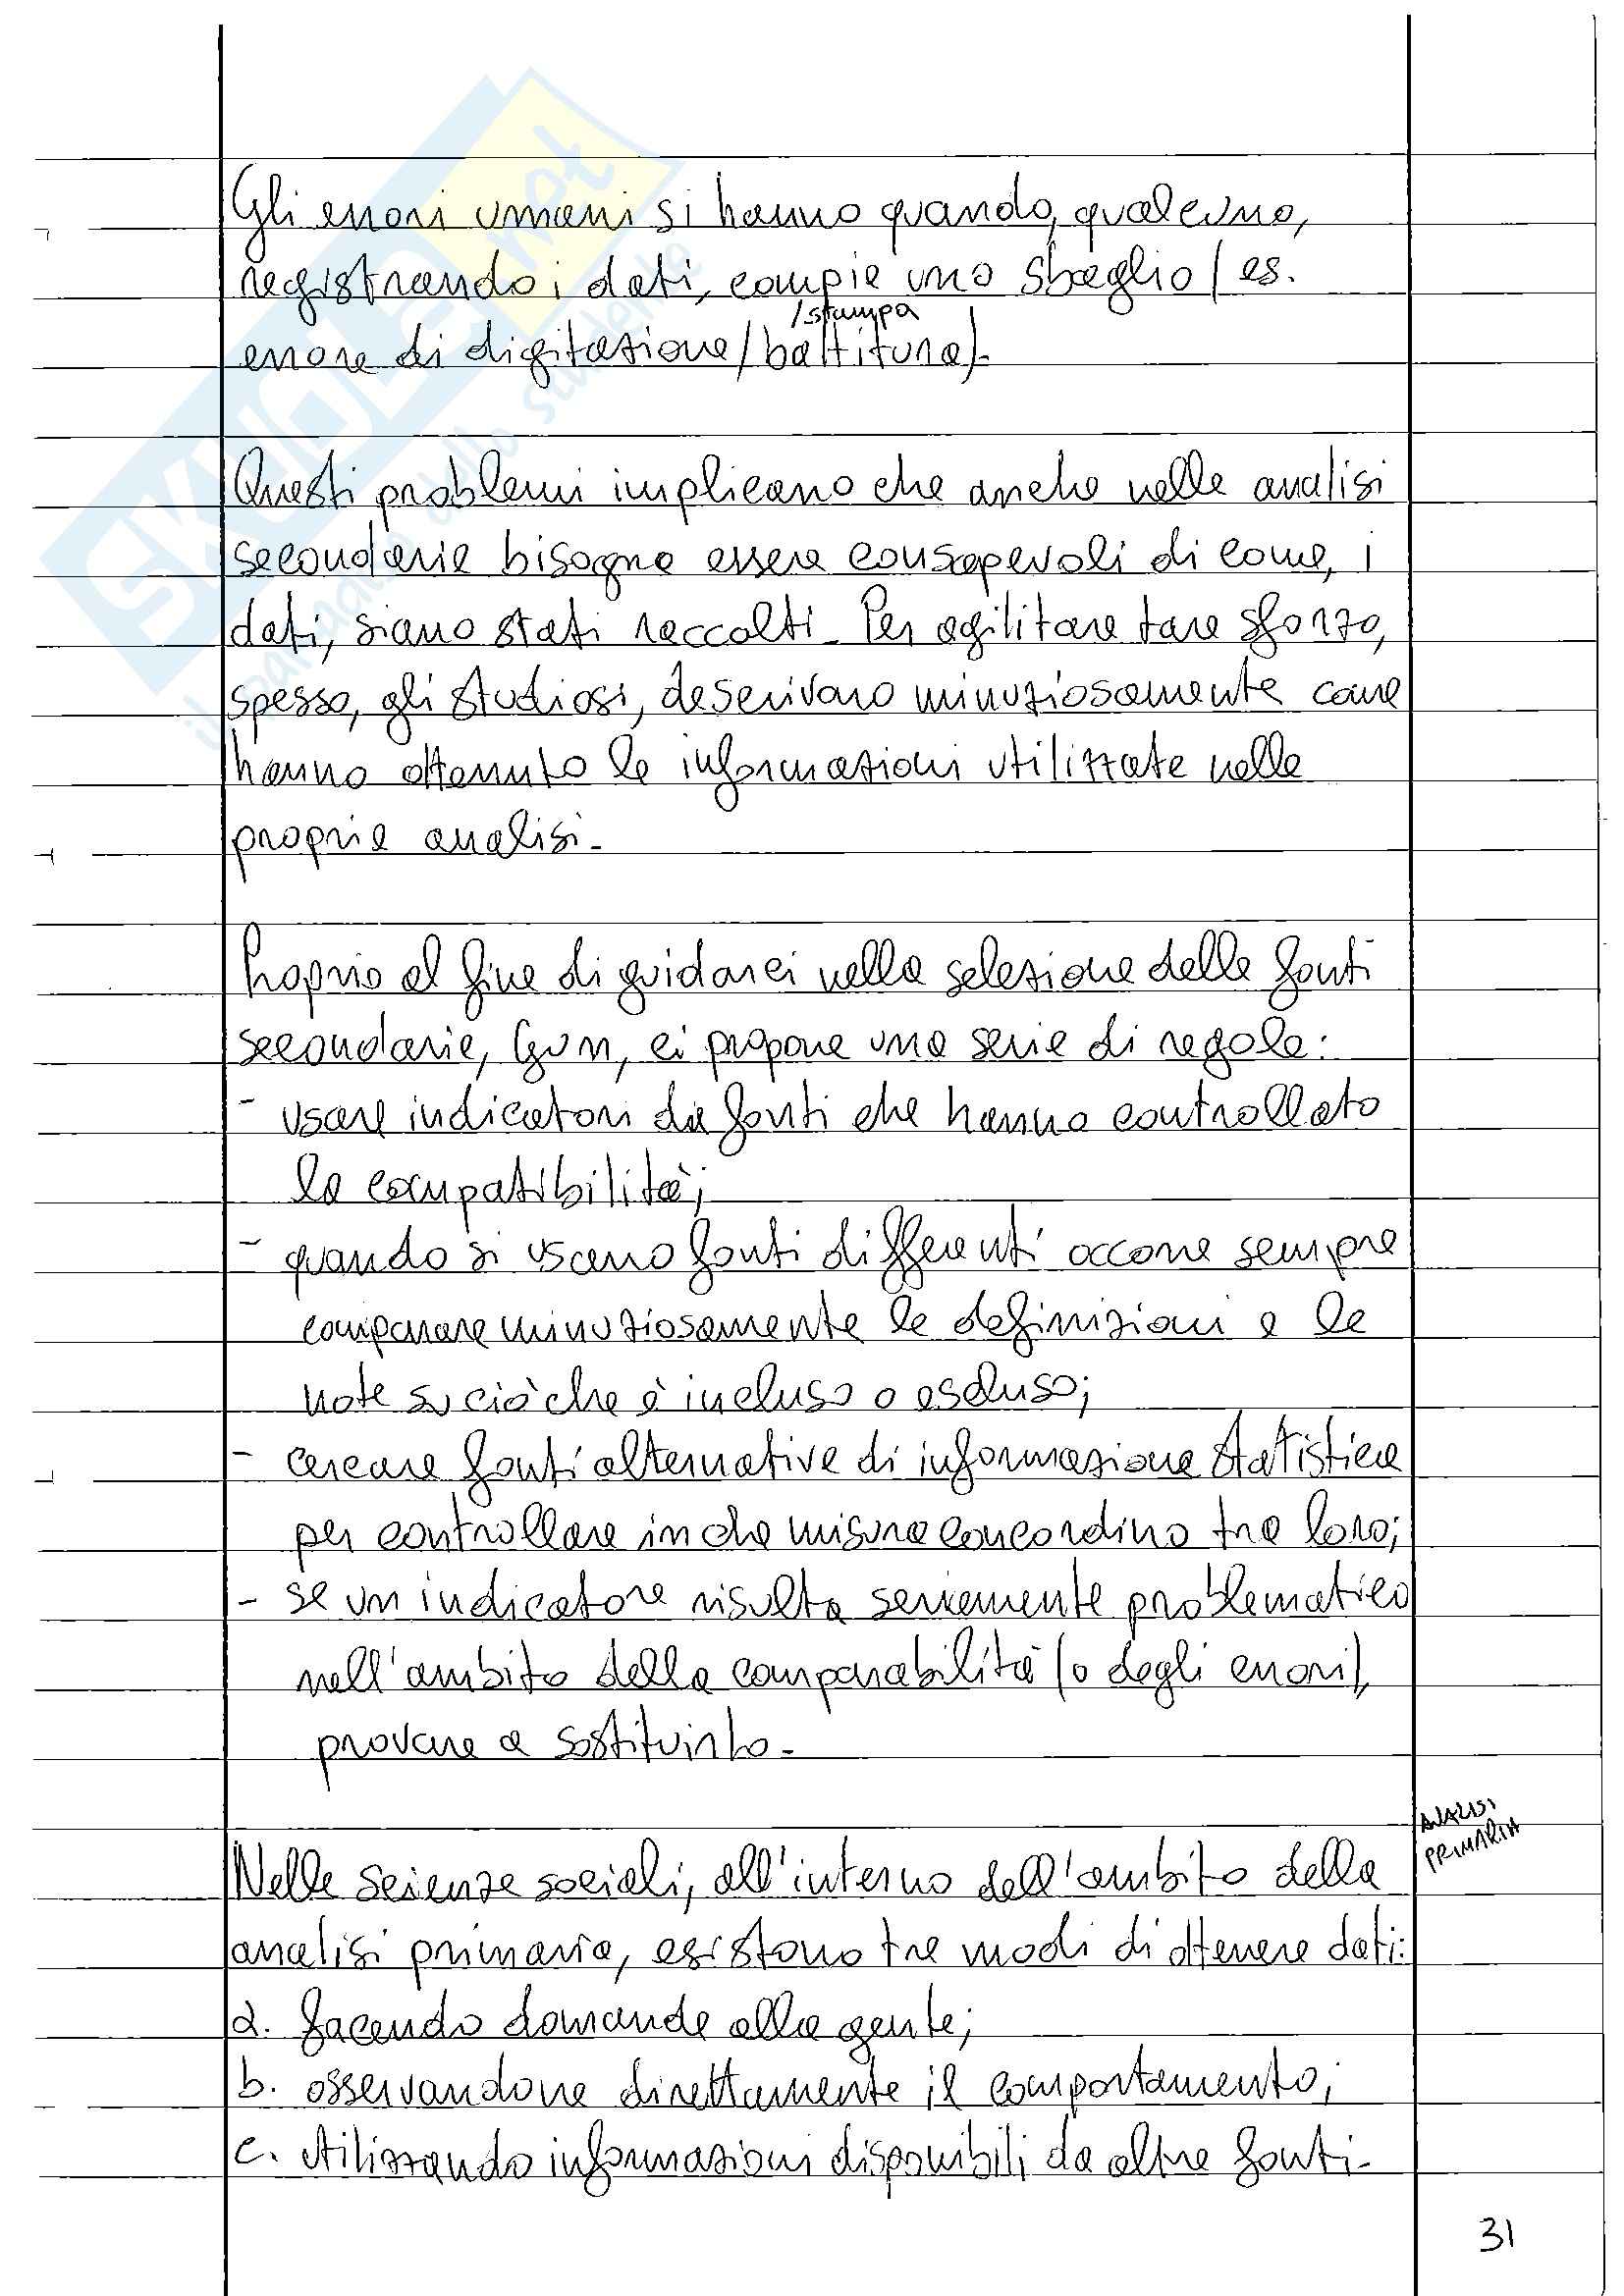 Gli errori umani si hanno quando, qualcuno,
registrando i dati, compie uno sbaglio (es.
/stampa
errore di digitazione/battitura).
Questi problemi implicano che anche nelle analisi
secondarie bisogna essere consapevoli di come, i
dati, siano stati raccolti. Per agilitare tare sforzo,
spesso, gli studiosi, descrivono minuziosamente come
hanno ottenuto le informazioni utilizzate nelle
proprie analisi.
Proprio al fine di guidarci nella selezione delle fonti
secondarie, ci propone una serie di regole:
- usare indicatori da fonti che hanno controllato
la compatibilità;
- quando si usano fonti differenti occorre sempre
comparare minuziosamente le definizioni e le
note su ciò che è incluso o escluso;
- cercare fonti alternative di informazione statistica
per controllare in che misura concordino tra loro;
- se un indicatore risulta seriamente problematico
nell'ambito della comparabilità (o degli errori),
provare a sostituirlo.
ANALISI
PRIMARIA
Nelle scienze sociali, all'interno dell'ambito della
analisi primaria, esistono tre modi di ottenere dati:
a. facendo domande alla gente;
b. osservandone direttamente il comportamento;
c. utilizzando informazioni disponibili da altre fonti.
31
SKUOLA.net
il paradiso dello studente